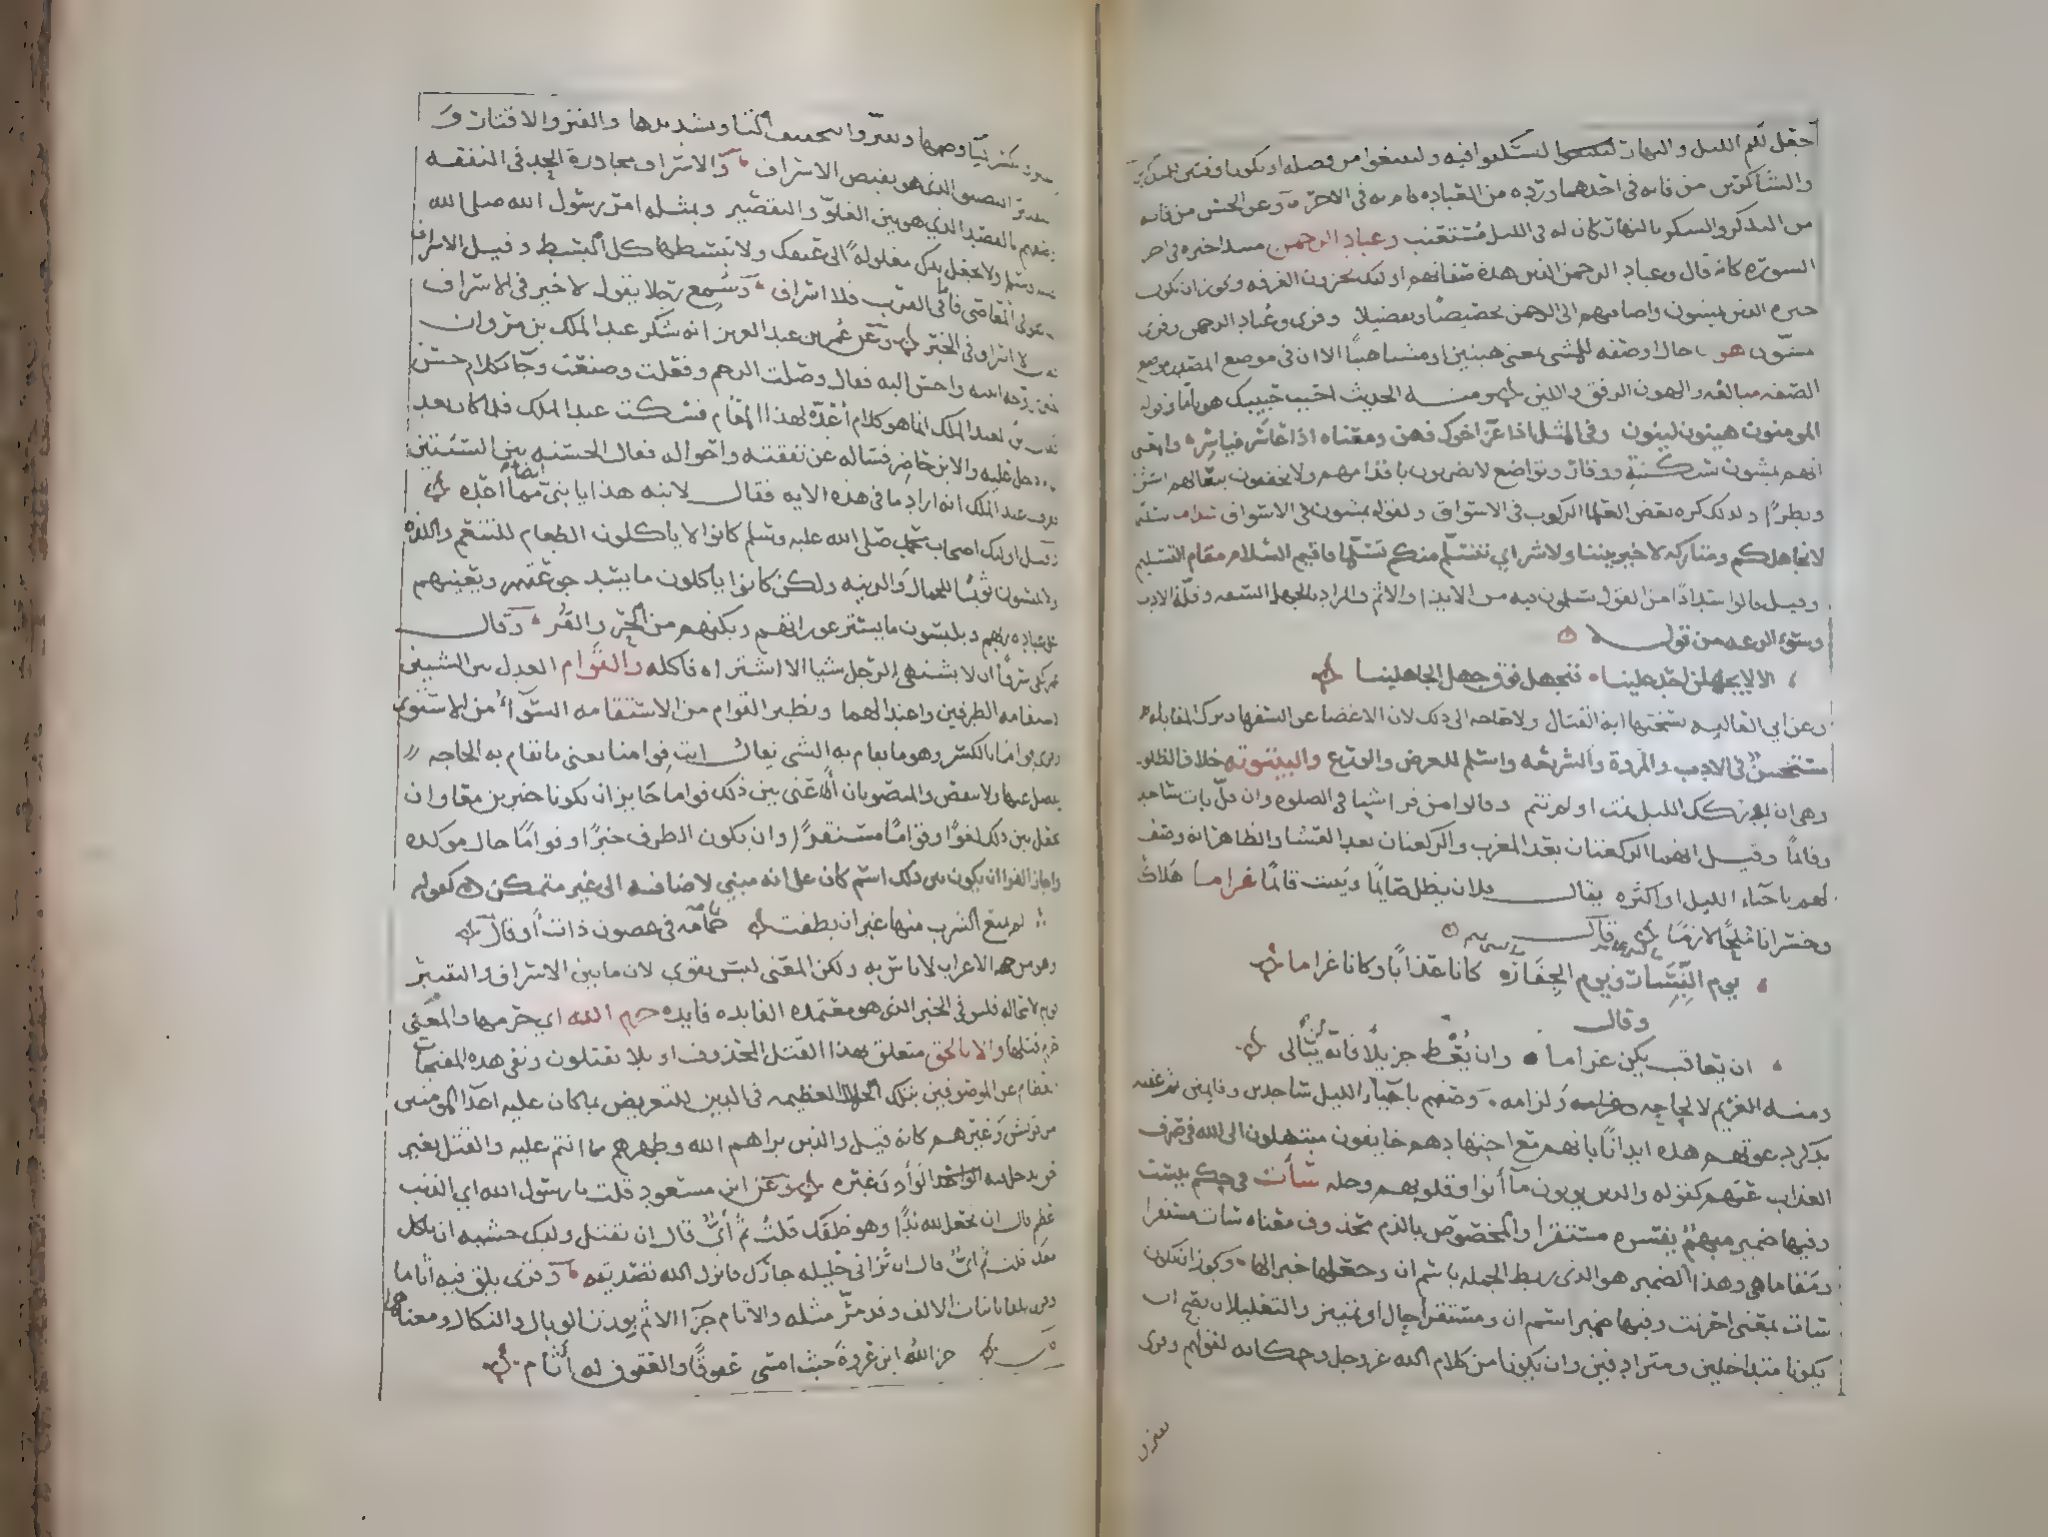 جعل لكم الليل والنهار لتسكنوا فيه ولتبتغوا من فضله او ليكونا وقتين
والشاكرين من فاته في احدهما ورده من العباده قام به في الاخر وعن الحسن من فاته
من التذكر والشكر بالنهار كان له في الليل مستعتب وعباد الرحمن مبتدا خبره في اخر
السوره كانه قال وعباد الرحمن الذين هذه صفاتهم اوليك يجزون الغرفه ويجوز ان يكون
خبره الذين يمشون واضافهم الى الرحمن تخصيصا وتفضيلا وقرى وعباد الرحمن وقرى
يمشون هونا حال او صفه للمشي بمعنى هينين او مشيا هينا الا ان في موضع المصدر موضع
الصفه مبالغه والهون الرفق واللين ومنه الحديث احبب حبيبك هونا ما وقوله
المومنون هينون لينون وفي المثل اذا عز اخوك فهن ومعناه اذا عاسر فياسر والمعنى
انهم يمشون بسكينة ووقار وتواضع لا يضربون باقدامهم ولا يخفقون بنعالهم اشرا
وبطرا ولذلك كره بعض العلما الركوب في الاسواق ولقوله يمشون في الاسواق سلاما تسلما
لا نجاهلكم ومتاركه لا خير بيننا ولا شر اي نتسلم منكم تسلما فاقيم السلام مقام التسليم
وقيل قالوا سدادا من القول يسلمون فيه من الايذا والاثم والمراد بالجهل السفه وقلة الادب
وسوء الرعه من قوله
الا لا يجهلن احد علينا فنجهل فوق جهل الجاهلينا
وعن ابي العاليه نسختها اية القتال ولا حاجه الى ذلك لان الاغضا عن السفها وترك المقابله
مستحسن في الادب والمروة والشريعه واسلم للعرض والورع والبيتوته خلاف الظلول
وهي ان يدركك الليل نمت او لم تنم وقالوا من قرا شيا في الصلوة وان قل بات ساجدا
وقائما وقيل هما الركعتان بعد المغرب والركعتان بعد العشا والظاهر انه وصف
لهم باحياء الليل او اكثره يقال فلان يظل صائما ويبيت قائما غراما هلاكا
وخسرانا ملحا لازما قال
يوم النسار ويوم الجفار كانا عذابا وكانا غراما
وقال
ان يعاقب يكن غراما وان يعط جزيلا فانه لا يبالي
ومنه الغريم لالحاحه ولزامه وصفهم باحياء الليل ساجدين وقايمين ثم عقبه
بذكر دعوتهم هذه ايذانا بانهم مع اجتهادهم خايفون مبتهلون الى الله في صرف
العذاب عنهم كقوله والذين يوتون ما أتوا وقلوبهم وجله سات في حكم بيست
وفيها ضمير مبهم يفسره مستقرا والمخصوص بالذم محذوف معناه سات مستقرا
ومقاما هي وهذا الضمير هو الذي ربط الجمله باسم ان وجعلها خبرا لها ويجوز ان يكون
سات بمعنى احزنت وفيها ضمير اسم ان ومستقرا حال او تمييز والتعليلان يصح ان
يكونا متداخلين ومترادفين وان يكونا من كلام الله عز وجل وحكايه لقولهم وقرى
يقتروا بتخفيف التا وتشديدها والقتر والاقتار و
التضييق الذي هو نقيض الاسراف والاسراف مجاوزة الحد في النفقه
بالقصد الذي هو بين الغلو والتقصير وبمثله امر رسول الله صلى الله
ولا تجعل يدك مغلولة الى عنقك ولا تبسطها كل البسط وقيل الاسراف
في المعاصي فاما في القرب فلا اسراف وسمع رجلا يقول لا خير في الاسراف
لا اسراف في الخير وعن عمر بن عبد العزيز انه شكر عبد الملك بن مروان
حين زوجه ابنته واحسن اليه فقال وصلت الرحم وفعلت وصنعت وجا بكلام حسن
لعبد الملك انما هو كلام اعده لهذا المقام فسكت عبد الملك فلما كان بعد
دخل عليه والابن حاضر فساله عن نفقته واحواله فقال الحسنه بين السيئتين
فعرف عبد الملك انه اراد ما في هذه الايه فقال لابنه هذا يا بني ايضا مما اعده
وقيل اوليك اصحاب محمد صلى الله عليه وسلم كانوا لا ياكلون الطعام للتنعم واللذه
ولا يلبسون ثوبا للجمال والزينه ولكن كانوا ياكلون ما يسد جوعتهم ويعينهم
على عباده ربهم ويلبسون ما يستر عوراتهم ويكنهم من الحر والقر وقال
عمر كفى سرفا ان لا يشتهي الرجل شيا الا اشتراه فاكله والقوام العدل بين الشيئين
لاستقامه الطرفين واعتدالهما ونظير القوام من الاستقامه السوآء من الاستوا
وقرى قواما بالكسر وهو ما يقام به الشي يقال انت قوامنا يعني ما تقام به الحاجه
يفضل عنها ولا ينقص والمنصوبان أعني بين ذلك قواما جايز ان يكونا خبرين معا وان
يجعل بين ذلك لغوا وقواما مستقرا وان يكون الظرف خبرا وقواما حال موكده
واجاز الفرا ان يكون بين ذلك اسم كان على انه مبني لاضافته الى غير متمكن كقوله
لم يمنع الشرب منها غير ان نطقت حمامه في غصون ذات أوقال
وهو من جهه الاعراب لا باس به ولكن المعنى ليس بقوي لان ما بين الاسراف والتقتير
قوام لا محاله فليس في الخبر الذي هو معتمد الفايده فايده حرم الله اي حرمها والمعنى
حرم قتلها والا بالحق متعلق بهذا القتل المحذوف او بلا يقتلون ونفي هذه المقبحات
العظام عن الموصوفين بتلك الخلال العظيمه في الدين للتعريض بما كان عليه اعدآ المومنين
من قريش وغيرهم كانه قيل والذين براهم الله وطهرهم مما انتم عليه والقتل بغير
حق يدخل فيه الوأد وغيره وعن ابن مسعود قلت يا رسول الله اي الذنب
عظم قال ان تجعل لله ندا وهو خلقك قلت ثم أي قال ان تقتل ولدك خشيه ان ياكل
معك قلت ثم اي قال ان تزاني حليله جارك فانزل الله تصديقه وقرى يلق فيه اثاما
وقرى يلقى باثبات الالف وقد مر مثله والاثام جزآ الاثم بوزن الوبال والنكال ومعناهما
قال جزى الله ابن عروة حيث امسى عقوقا والعقوق له أثام